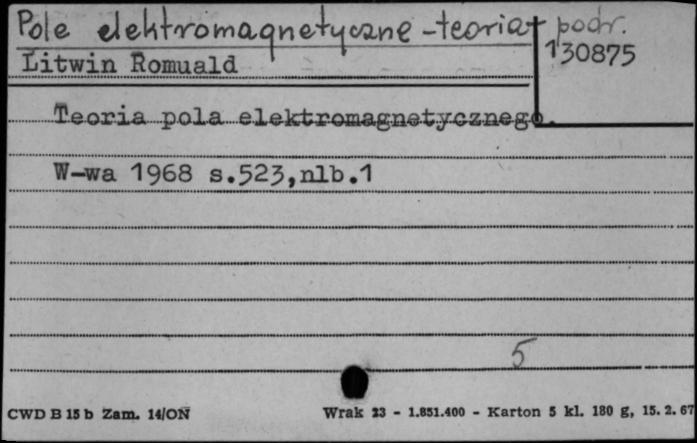 Pole elektromagnetyczne - teoria - podr.
130875
Litwin Romuald
Teoria pola elektromagnetycznego.
W-wa 1968 s.523,nlb.1
5
CWD B 15 b Zam. 14/ON Wrak 23 - 1.851.400 - Karton 5 kl. 180 g, 15. 2. 67